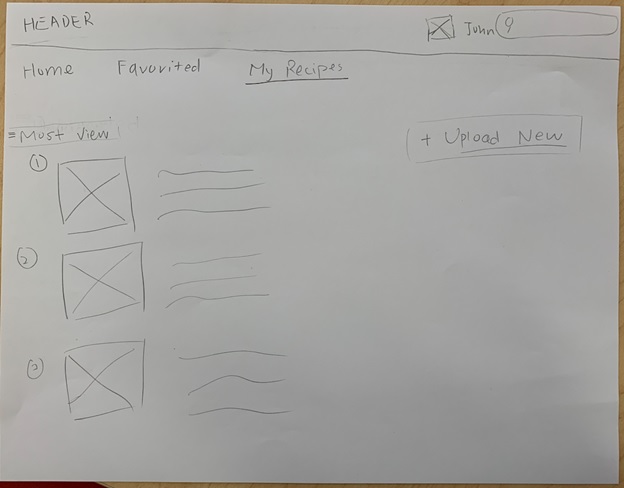 HEADER
John
Home Favorited My Recipes
= Most View
+ Upload New
1
2
3